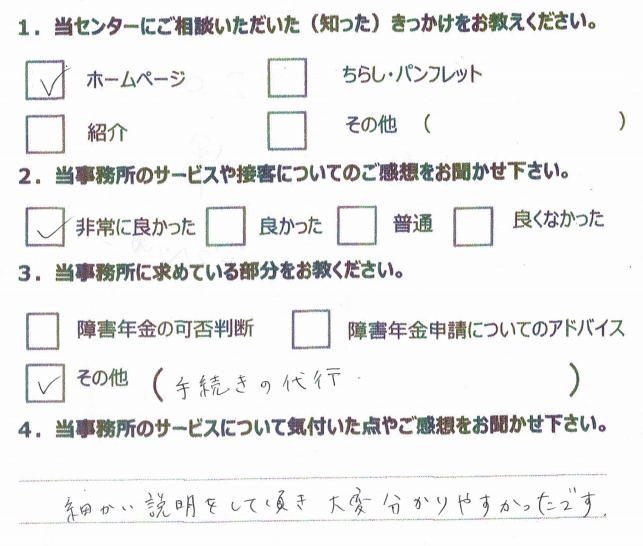 1．当センターにご相談いただいた（知った）きっかけをお教えください。
✓ ホームページ □ ちらし・パンフレット
□ 紹介 □ その他 （ ）
2．当事務所のサービスや接客についてのご感想をお聞かせ下さい。
✓ 非常に良かった □ 良かった □ 普通 □ 良くなかった
3．当事務所に求めている部分をお教ください。
□ 障害年金の可否判断 □ 障害年金申請についてのアドバイス
✓ その他 （ 手続きの代行. ）
4．当事務所のサービスについて気付いた点やご感想をお聞かせ下さい。
細かい説明をして頂き 大変分かりやすかったです.